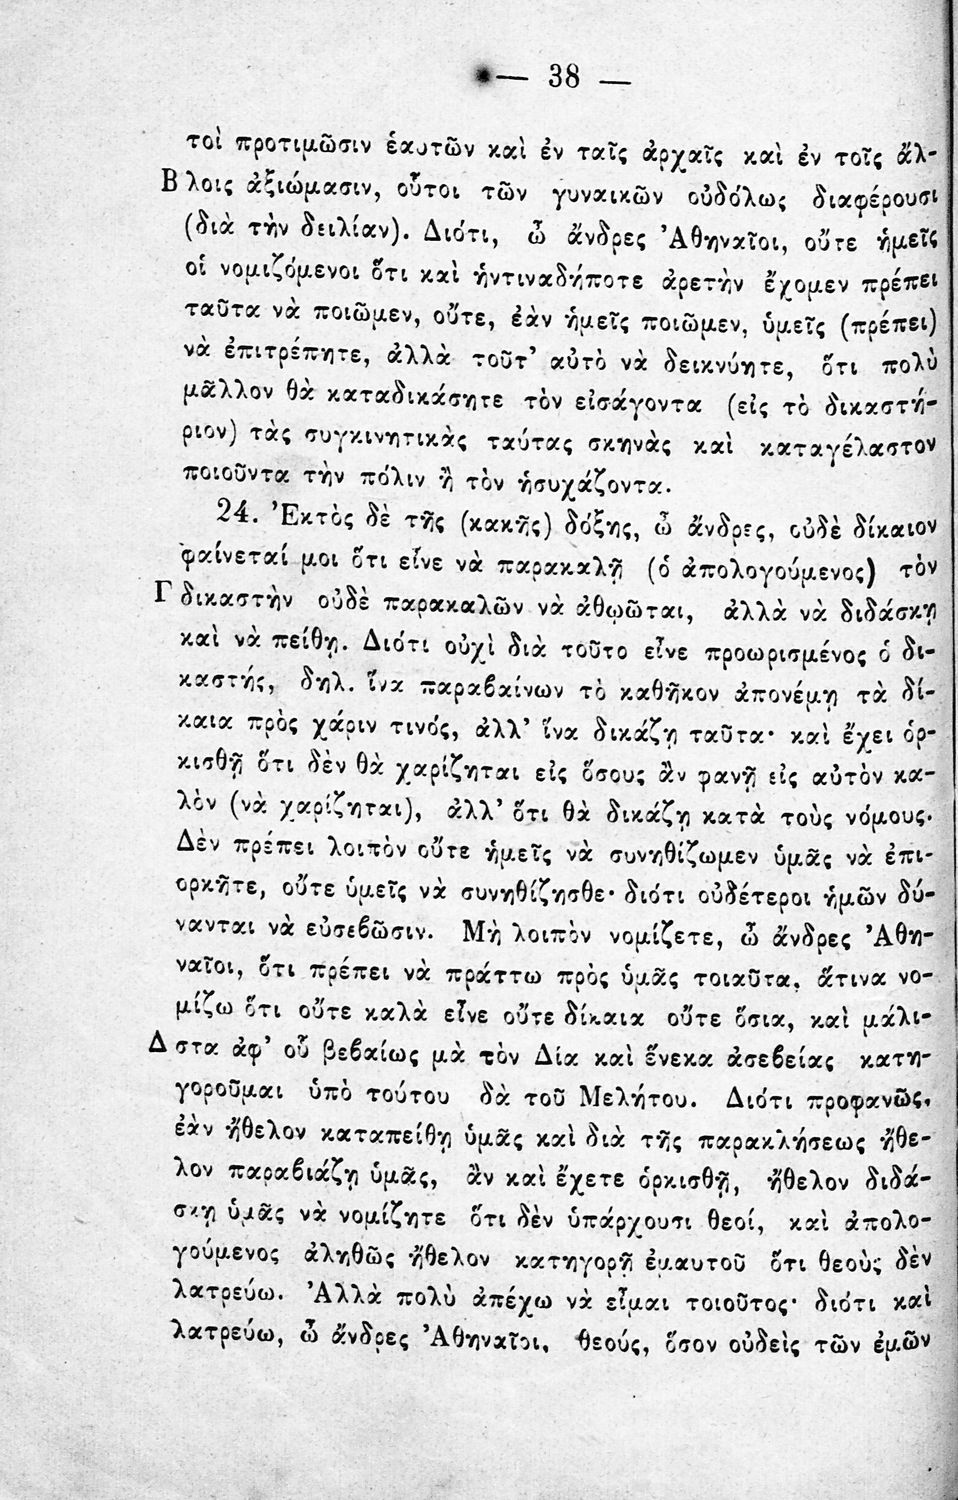 — 38 —
τοὶ προτιμῶσιν ἑαυτῶν καὶ ἐν ταῖς ἀρχαῖς καὶ ἐν τοῖς ἄλ-
Β λοις ἀξιώμασιν, οὗτοι τῶν γυναικῶν οὐδόλως διαφέρουσι
(διὰ τὴν δειλίαν). Διότι, ὦ ἄνδρες Ἀθηναῖοι, οὔτε ἡμεῖς
οἱ νομιζόμενοι ὅτι καὶ ἡντιναδήποτε ἀρετὴν ἔχομεν πρέπει
ταῦτα νὰ ποιῶμεν, οὔτε, ἐὰν ἡμεῖς ποιῶμεν, ὑμεῖς (πρέπει)
νὰ ἐπιτρέπητε, ἀλλὰ τοῦτ' αὐτὸ νὰ δεικνύητε, ὅτι πολὺ
μᾶλλον θὰ καταδικάσητε τὸν εἰσάγοντα (εἰς τὸ δικαστή-
ριον) τὰς συγκινητικὰς ταύτας σκηνὰς καὶ καταγέλαστον
ποιοῦντα τὴν πόλιν ἢ τὸν ἡσυχάζοντα.
24. Ἐκτὸς δὲ τῆς (κακῆς) δόξης, ὦ ἄνδρες, οὐδὲ δίκαιον
φαίνεταί μοι ὅτι εἶνε νὰ παρακαλῇ (ὁ ἀπολογούμενος) τὸν
Γ δικαστὴν οὐδὲ παρακαλῶν νὰ ἀθῳῶται, ἀλλὰ νὰ διδάσκῃ
καὶ νὰ πείθῃ. Διότι οὐχὶ διὰ τοῦτο εἶνε προωρισμένος ὁ δι-
καστής, δηλ. ἵνα παραβαίνων τὸ καθῆκον ἀπονέμῃ τὰ δί-
καια πρὸς χάριν τινός, ἀλλ' ἵνα δικάζῃ ταῦτα· καὶ ἔχει ὁρ-
κισθῆ ὅτι δὲν θὰ χαρίζηται εἰς ὅσους ἂν φανῇ εἰς αὐτὸν κα-
λὸν (νὰ χαρίζηται), ἀλλ' ὅτι θὰ δικάζῃ κατὰ τοὺς νόμους.
Δὲν πρέπει λοιπὸν οὔτε ἡμεῖς νὰ συνηθίζωμεν ὑμᾶς νὰ ἐπι-
ορκῆτε, οὔτε ὑμεῖς νὰ συνηθίζησθε· διότι οὐδέτεροι ἡμῶν δύ-
νανται νὰ εὐσεβῶσιν. Μὴ λοιπὸν νομίζετε, ὦ ἄνδρες Ἀθη-
ναῖοι, ὅτι πρέπει νὰ πράττω πρὸς ὑμᾶς τοιαῦτα, ἅτινα νο-
μίζω ὅτι οὔτε καλὰ εἶνε οὔτε δίκαια οὔτε ὅσια, καὶ μάλι-
Δ στα ἀφ' οὗ βεβαίως μὰ τὸν Δία καὶ ἕνεκα ἀσεβείας κατη-
γοροῦμαι ὑπὸ τούτου δὰ τοῦ Μελήτου. Διότι προφανῶς,
ἐὰν ἤθελον καταπείθῃ ὑμᾶς καὶ διὰ τῆς παρακλήσεως ἤθε-
λον παραβιάζῃ ὑμᾶς, ἂν καὶ ἔχετε ὁρκισθῆ, ἤθελον διδά-
σκῃ ὑμᾶς νὰ νομίζητε ὅτι δὲν ὑπάρχουσι θεοί, καὶ ἀπολο-
γούμενος ἀληθῶς ἤθελον κατηγορῇ ἐμαυτοῦ ὅτι θεοὺς δὲν
λατρεύω. Ἀλλὰ πολὺ ἀπέχω νὰ εἶμαι τοιοῦτος· διότι καὶ
λατρεύω, ὦ ἄνδρες Ἀθηναῖοι, θεούς, ὅσον οὐδεὶς τῶν ἐμῶν